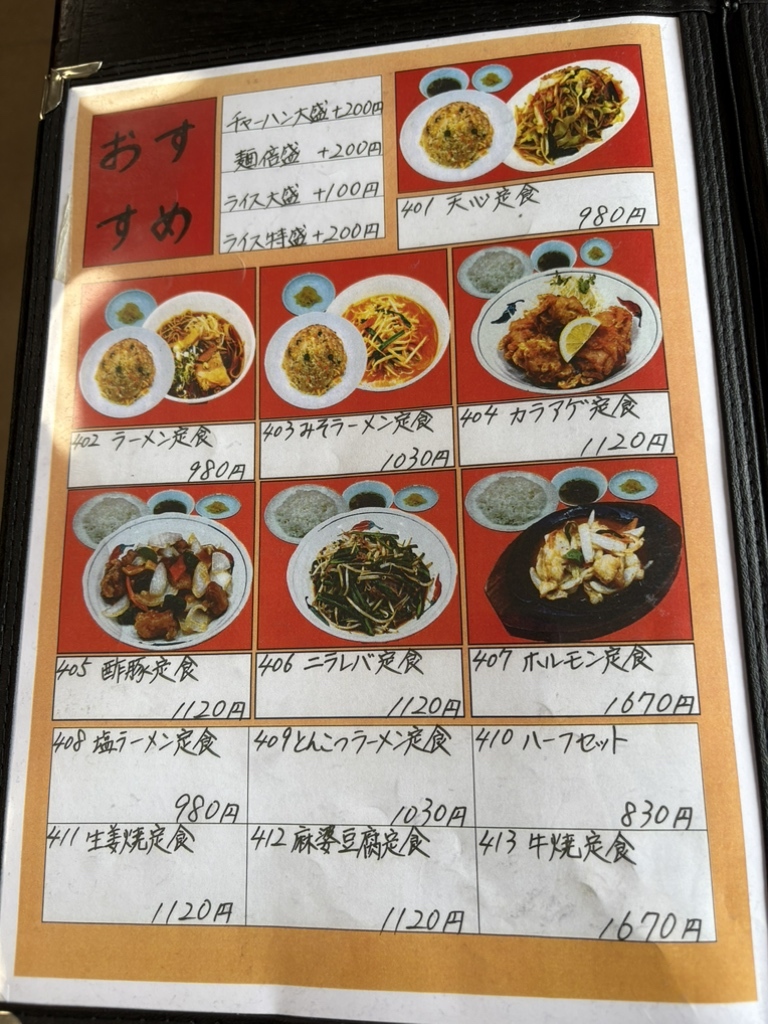 おす
すめ
チャーハン大盛+200円
麺倍盛 +200円
ライス大盛 +100円
ライス特盛+200円
401 天心定食
980円
402 ラーメン定食
980円
403みそラーメン定食
1030円
404 カラアゲ定食
1120円
405 酢豚定食
1120円
406 ニラレバ定食
1120円
407 ホルモン定食
1670円
408 塩ラーメン定食
980円
409とんこつラーメン定食
1030円
410 ハーフセット
830円
411 生姜焼定食
1120円
412 麻婆豆腐定食
1120円
413 牛焼定食
1670円